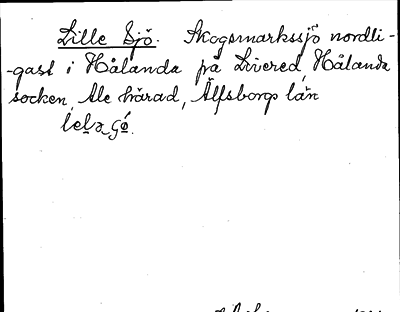 Lille Sjö. Skogsmarkssjö nordli-
-gast i Hålanda på Livered, Hålanda
socken, Ale härad, Älfsborgs län